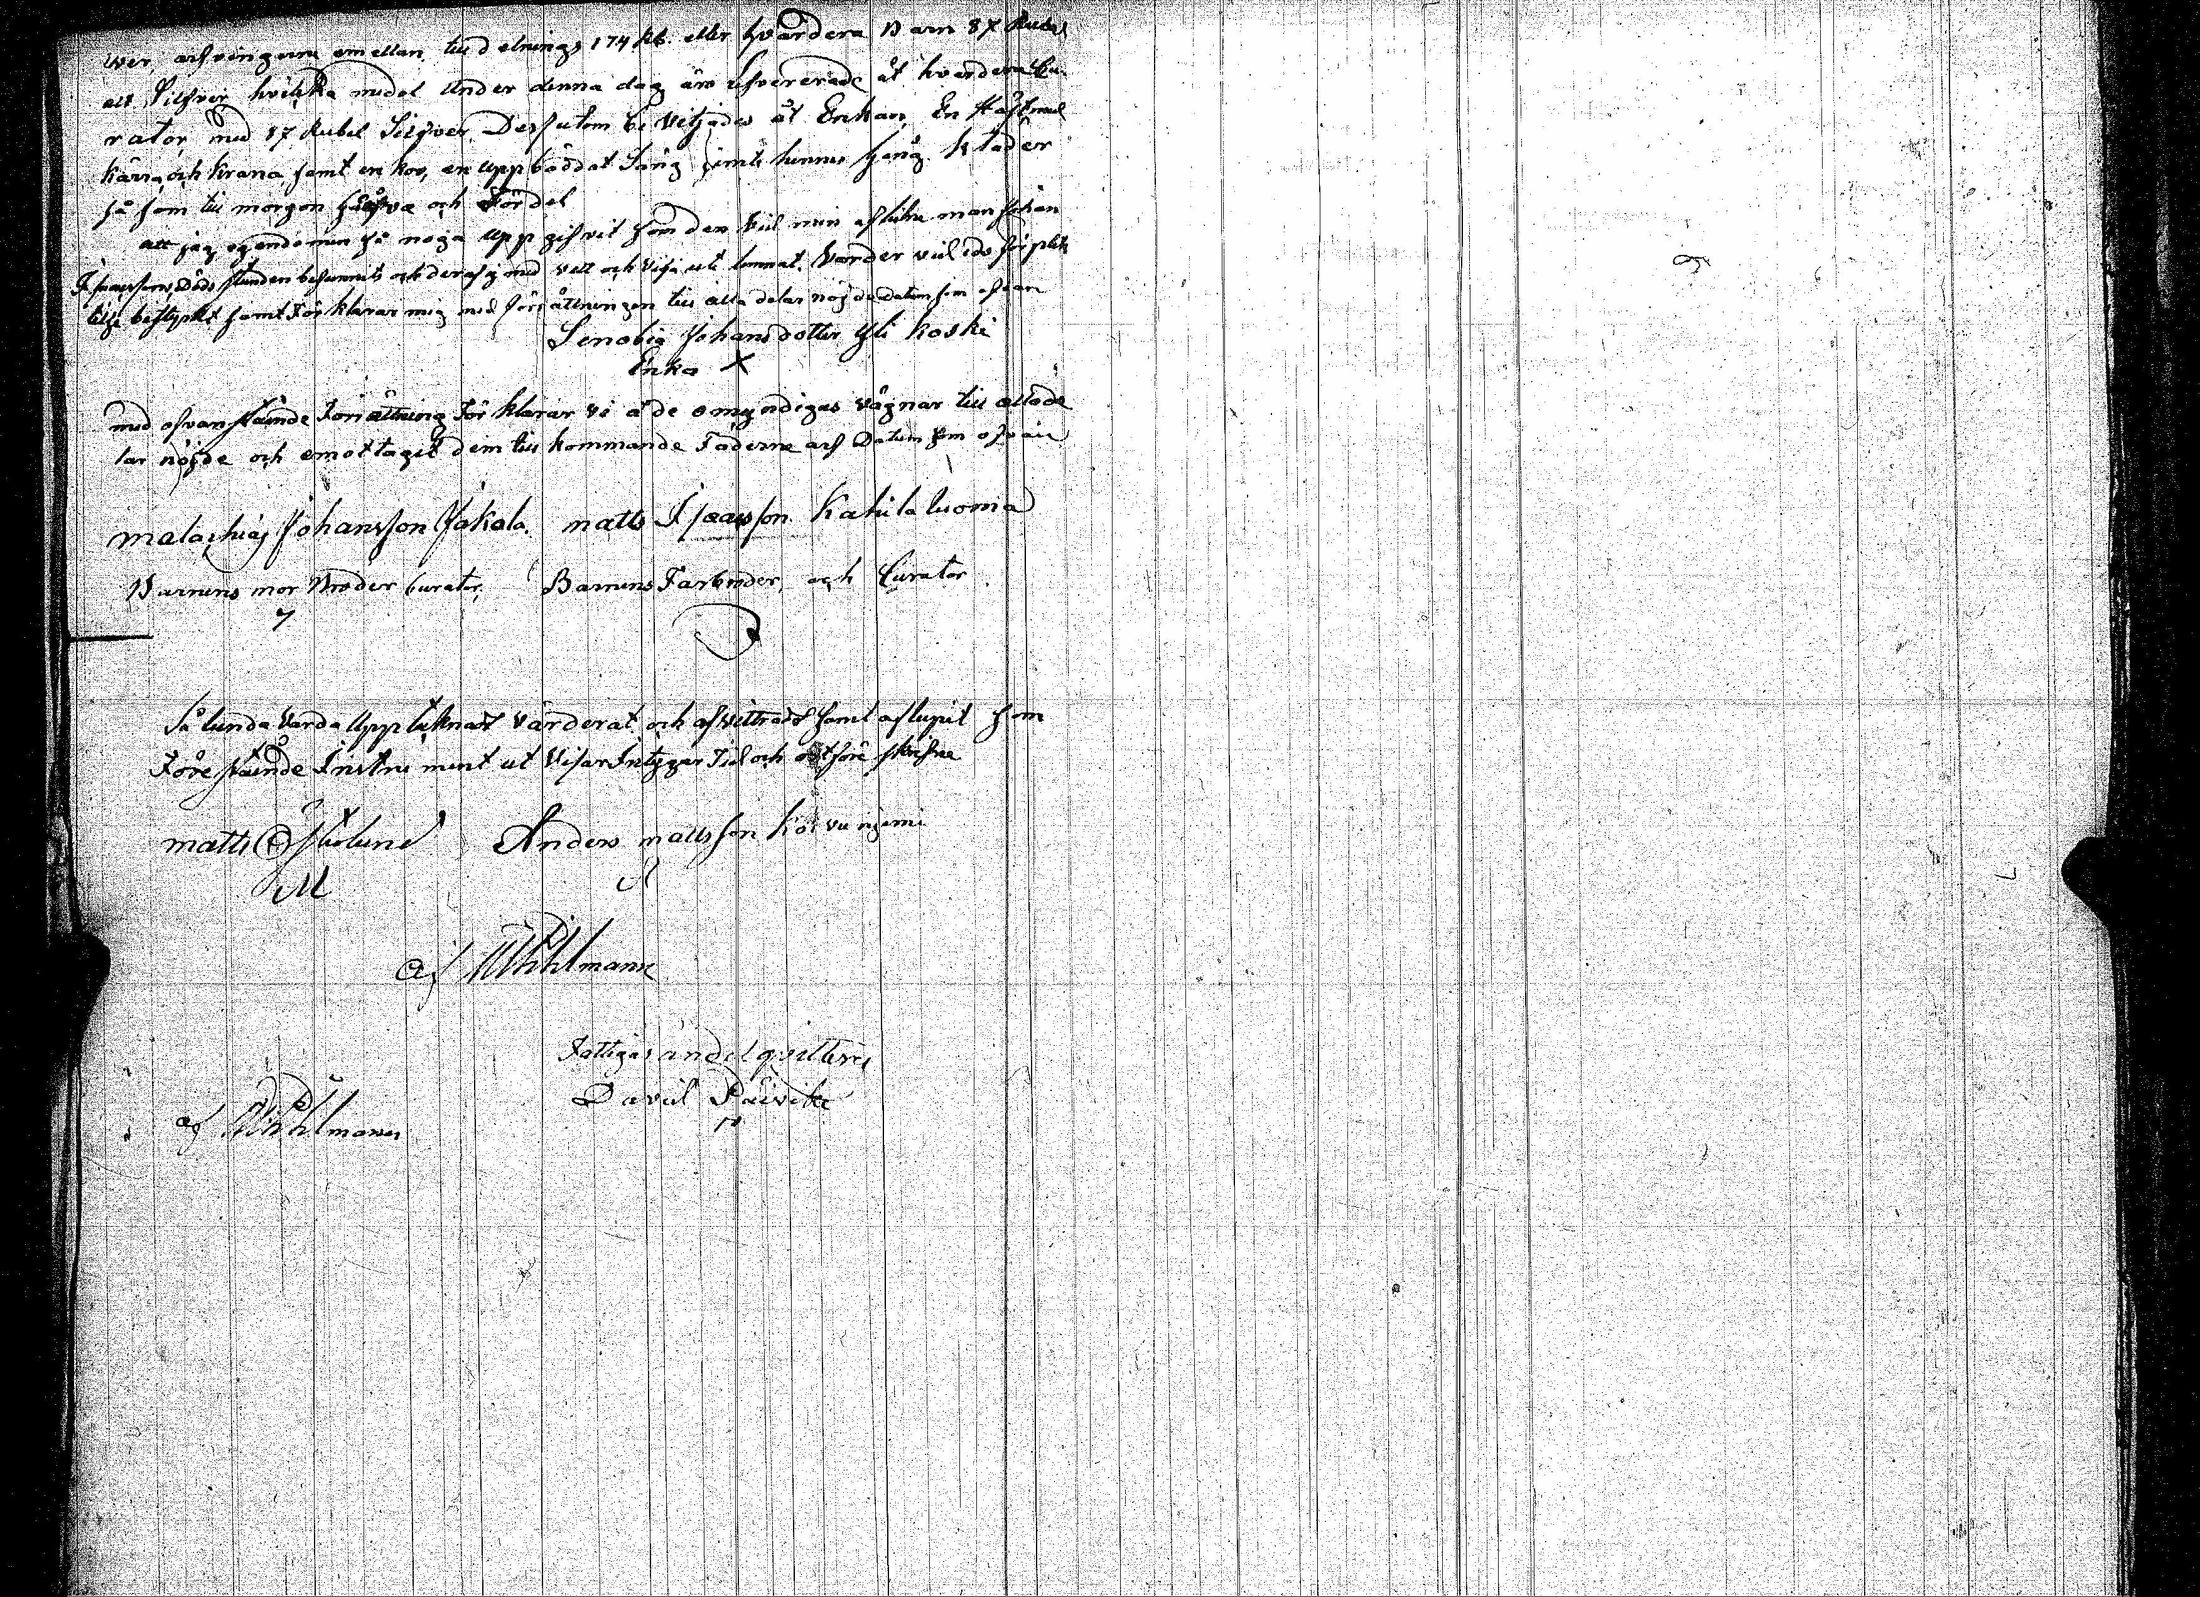 wer, arfvingarne emellan, till delnings 174 Rb. eller hvardera Barn 87 Rubel
all Silfver hvilka medel under denna dag äro lefvererade åt hvardera Cu-
rator, med 87 Rubel Silfver. Dessutom be viljades åt Enkan, En Häst med
kärra och krana samt en kov, en uppbäddat Säng samt hennes gång kläder
så som till morgon gåfva och Fördel
att jag egendomen så noga uppgifvit som den vid min aflidne man Johan
Isaacssons Dödsstunden befunnits och deraf ej med vett och vilja ute lemnat. Varder vid eds förplik
telse bestyrkt samt Förklarar mig med förrättningen till alla delar nöjde Datum som ofvan
Senobia Johansdotter Yli koski
Enka X
med ofvanstående Förrättning Förklarar vi å de omyndigas vägnar till allade
lar nöjde och emottagit dem till kommande Fäderne arf Datum som ofvan
malachias Johansson Jakola. matts Isaacsson Katilaluoma
Barnens mor Broder Curator, Barnens Farbroder, och Curator
Så lunda varda Upptäknat värderat och afvittrat samt aflupit som
Före stående Instrument ut visar Intygar Tid och ort före skrifne
matts Östlund Anders mattsson Koivuniemi
M A
af Wihlmann
Fattigas andel qvitteras
David Päivike
af Wihlmann